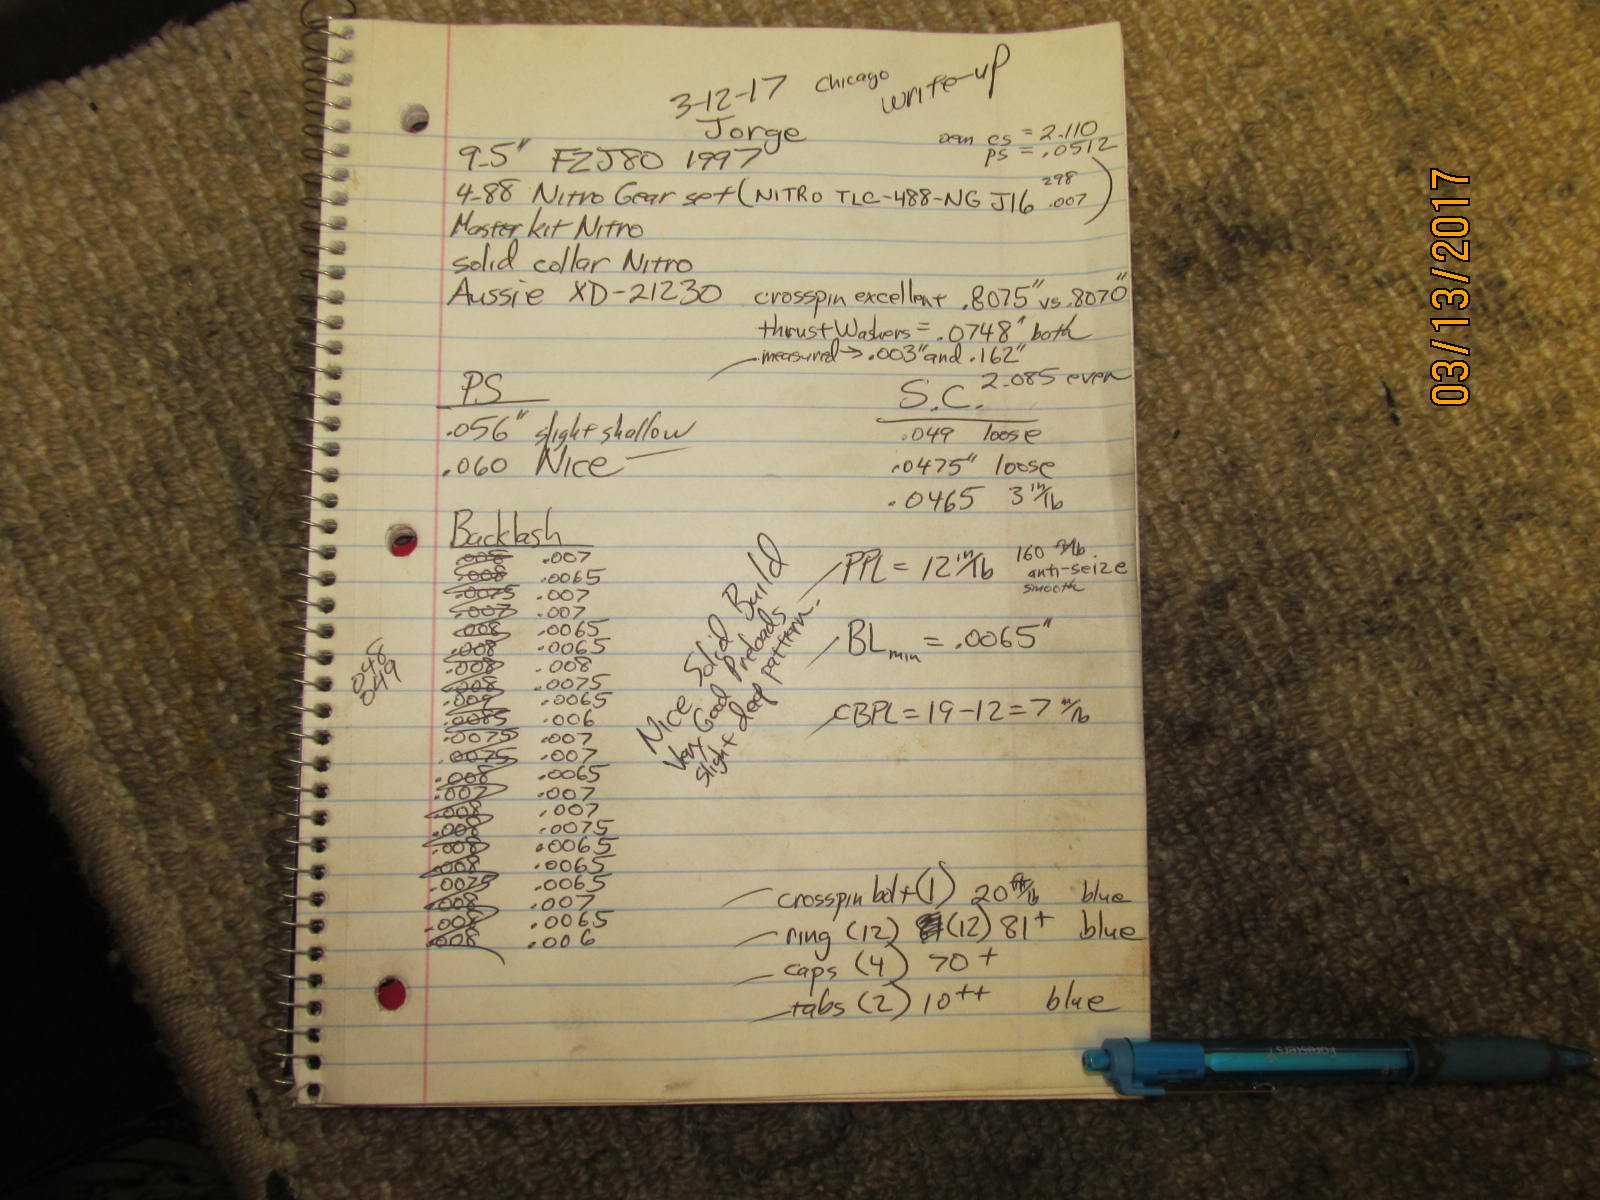 3-12-17 Chicago write-up
Jorge
oem cs = 2.110
ps = .0512
9.5" FZJ80 1997
4.88 Nitro Gear set (NITRO TLC-488-NG J16 298 .007)
Master kit Nitro
solid collar Nitro
Aussie XD-21230 crosspin excellent .8075" vs .8070"
thrust washers = .0748" both
measured → .003" and .162"
PS
.056" slight shallow
.060 Nice
S.C. 2.085 even
.049 loose
.0475" loose
.0465 3 in/lb
Backlash
.008 .007
.008 .0065
.0075 .007
.007 .007
.008 .0065
.008 .0065
.008 .008
.008 .0075
.009 .0065
.0085 .006
.0075 .007
.0075 .007
.008 .0065
.007 .007
.008 .007
.008 .0075
.008 .0065
.008 .0065
.0075 .0065
.008 .007
.008 .0065
.008 .006
.048
.049
Nice Solid Build
Very Good Preloads
slight deep pattern.
PPL = 12 in/lb 160 ft/lb
anti-seize
smooth
BL min = .0065"
CBPL = 19-12 = 7 in/lb
crosspin bolt (1) 20 ft/lb blue
ring (12) (12) 81+ blue
caps (4) 70+
tabs (2) 10++ blue
Foresters
03/13/2017